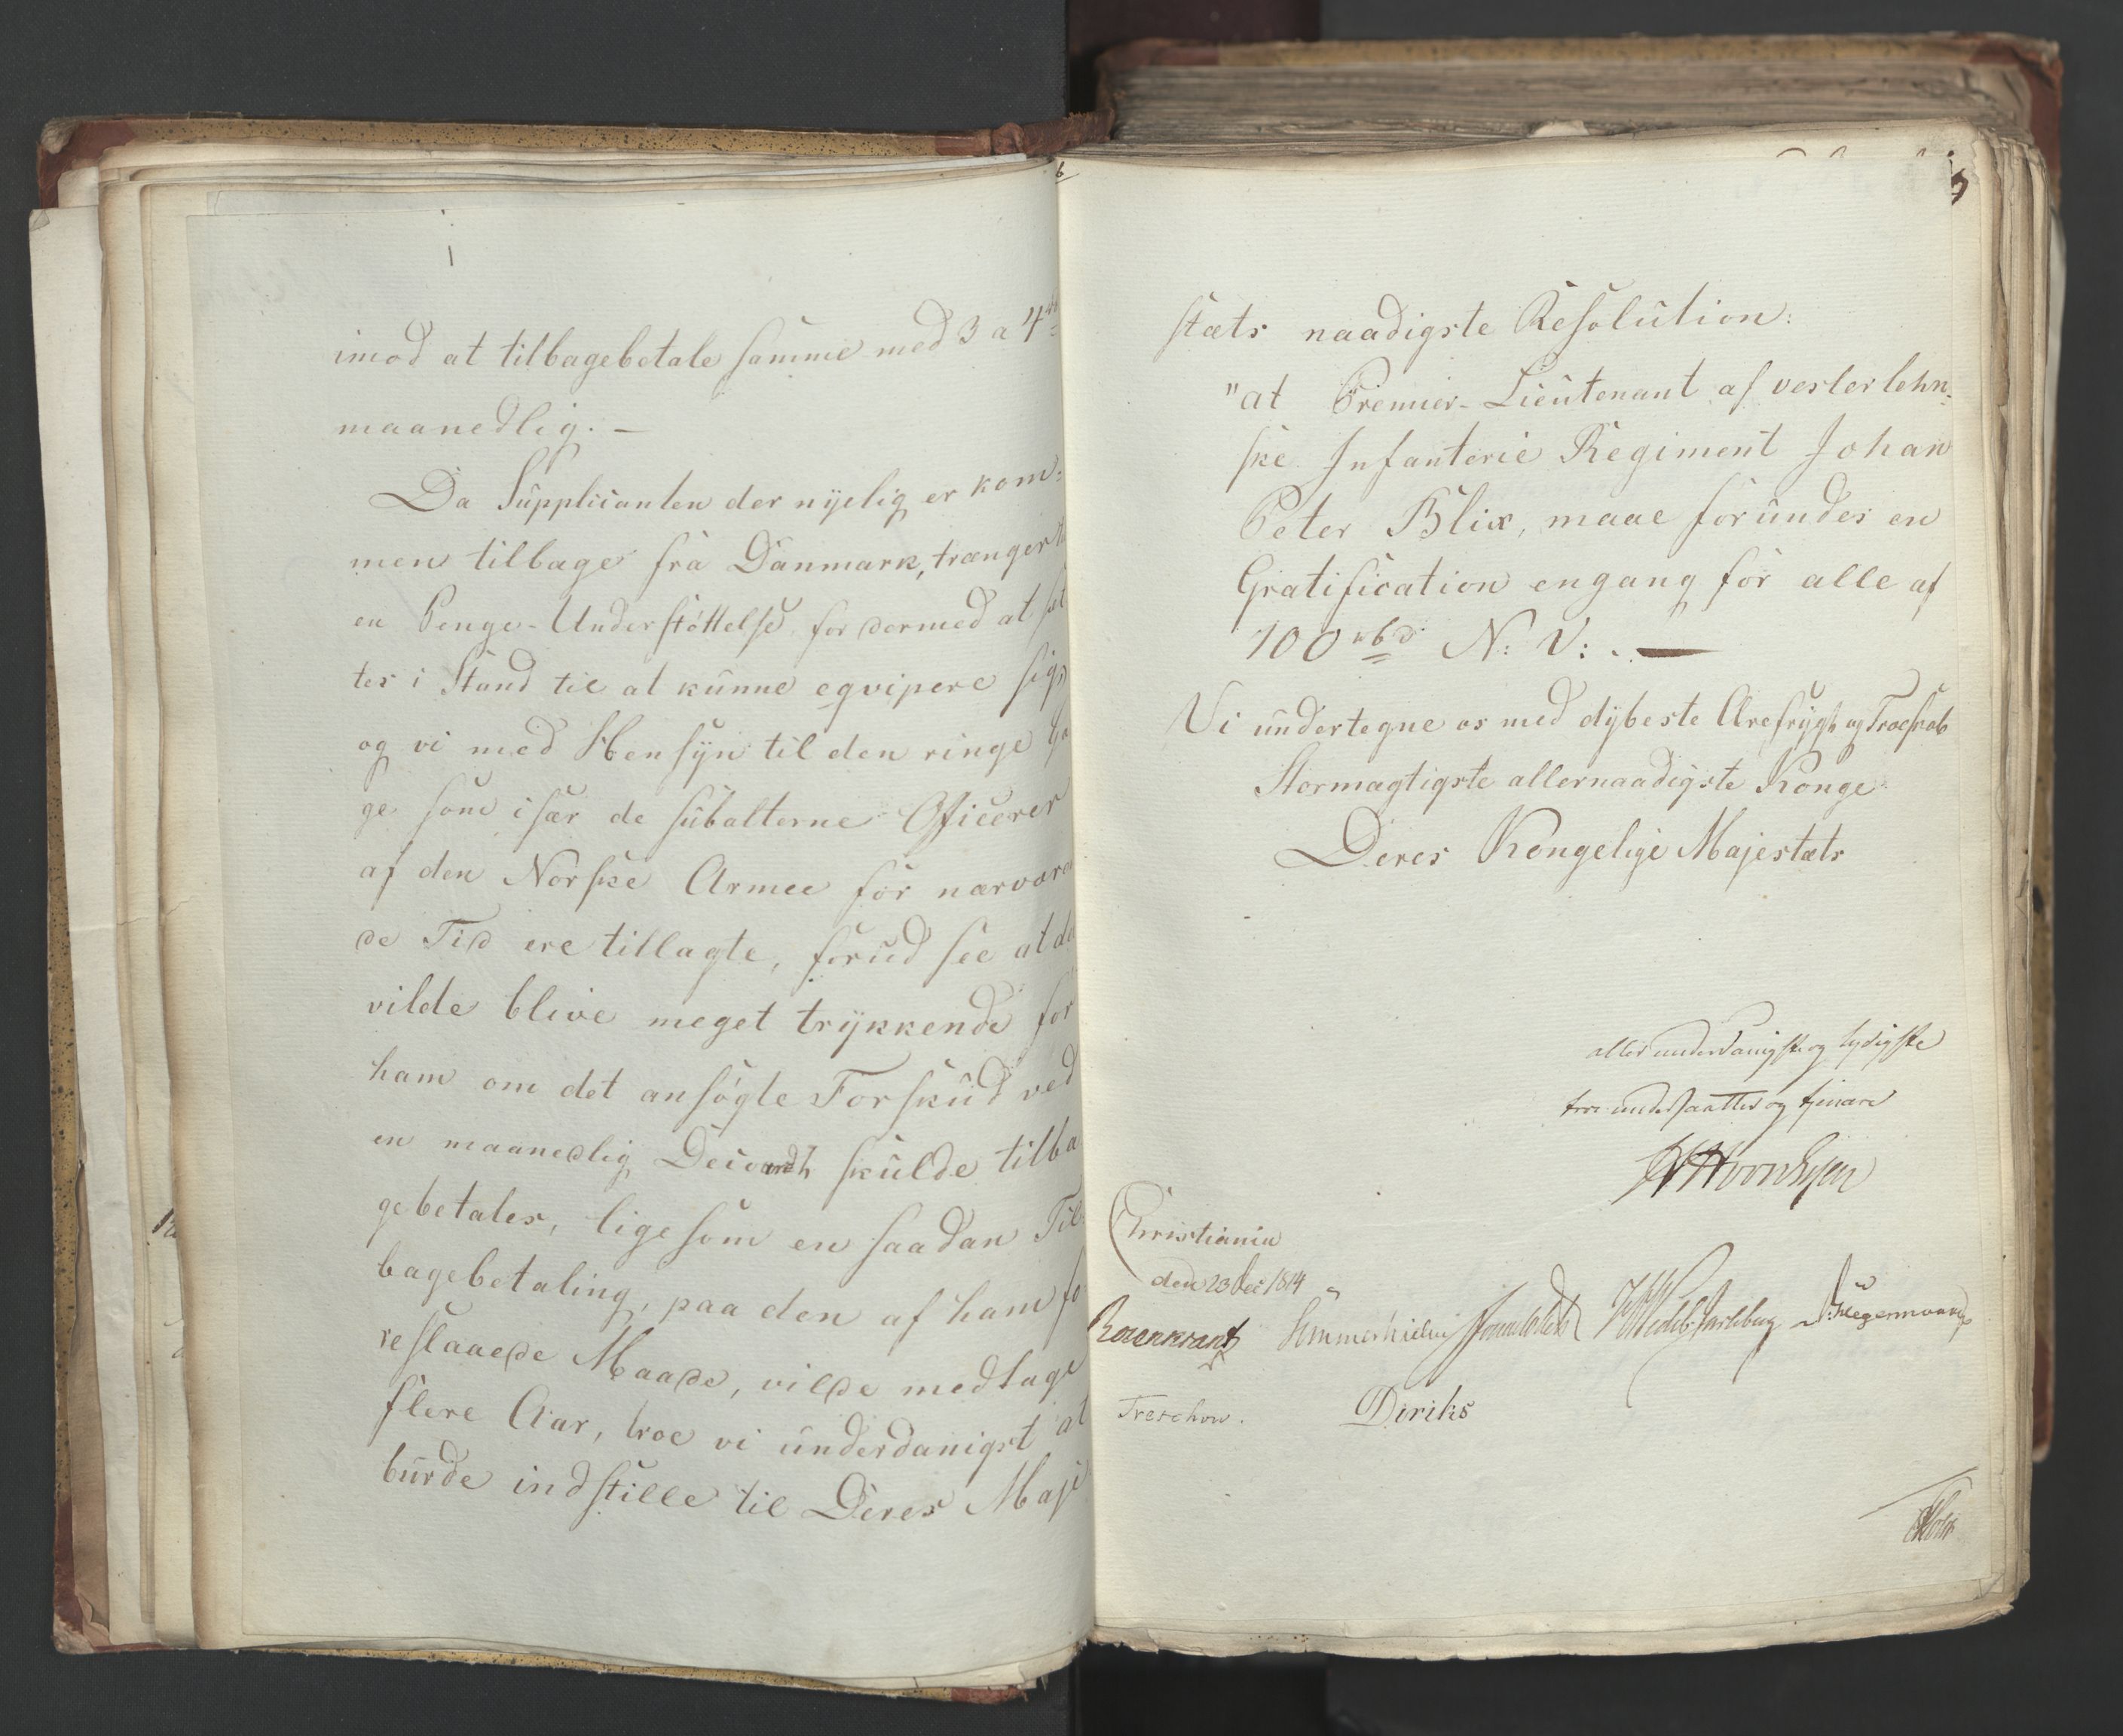 imod at tilbagebetale samme med 3 a 4
maanedlig. –
Da Supplicanten der nyelig er kom:
men tilbage fra Danmark, trænger
en Penge-Understøttelse for dermed at sæt
tes i Stand til at kunne eqvipere sig,
og vi med Hensyn til den ringe Ga
ge som især de subalterne Officerer
af den Norske Armee for nærværen
de Tid ere tillagte, forud see at
vilde blive meget trykkende for
ham om det ansøgte Forskud ved
en maanedlig skulde tilba
gebetales, ligesom en saadan Til:
bagebetaling, paa den af ham fo
reslaaede Maade, vilde medtage
flere Aar, troe vi underdanigst at
burde indstille til Deres Maje
6
7
stæts naadigste Resolution:
"at Premier-Lieutenant af vesterlehn:
ske Infanterie Regiment Johan
Peter Blix, maae forundes en
Gratification engang for alle af
100 rbd N: V: . —
Vi undertegne os med dybeste Ærefrygt og Troeskab
Stormægtigste allernaadigste Konge
Deres Kongelige Majestæts
allerunderdanigste og lydigste
troe undersaatter og tjenere
Christiania
den 23 Dec 1814
Rosenkrantz Sommerhielm Wedel-Jarlsberg Hegermann
Treschow. Diriks